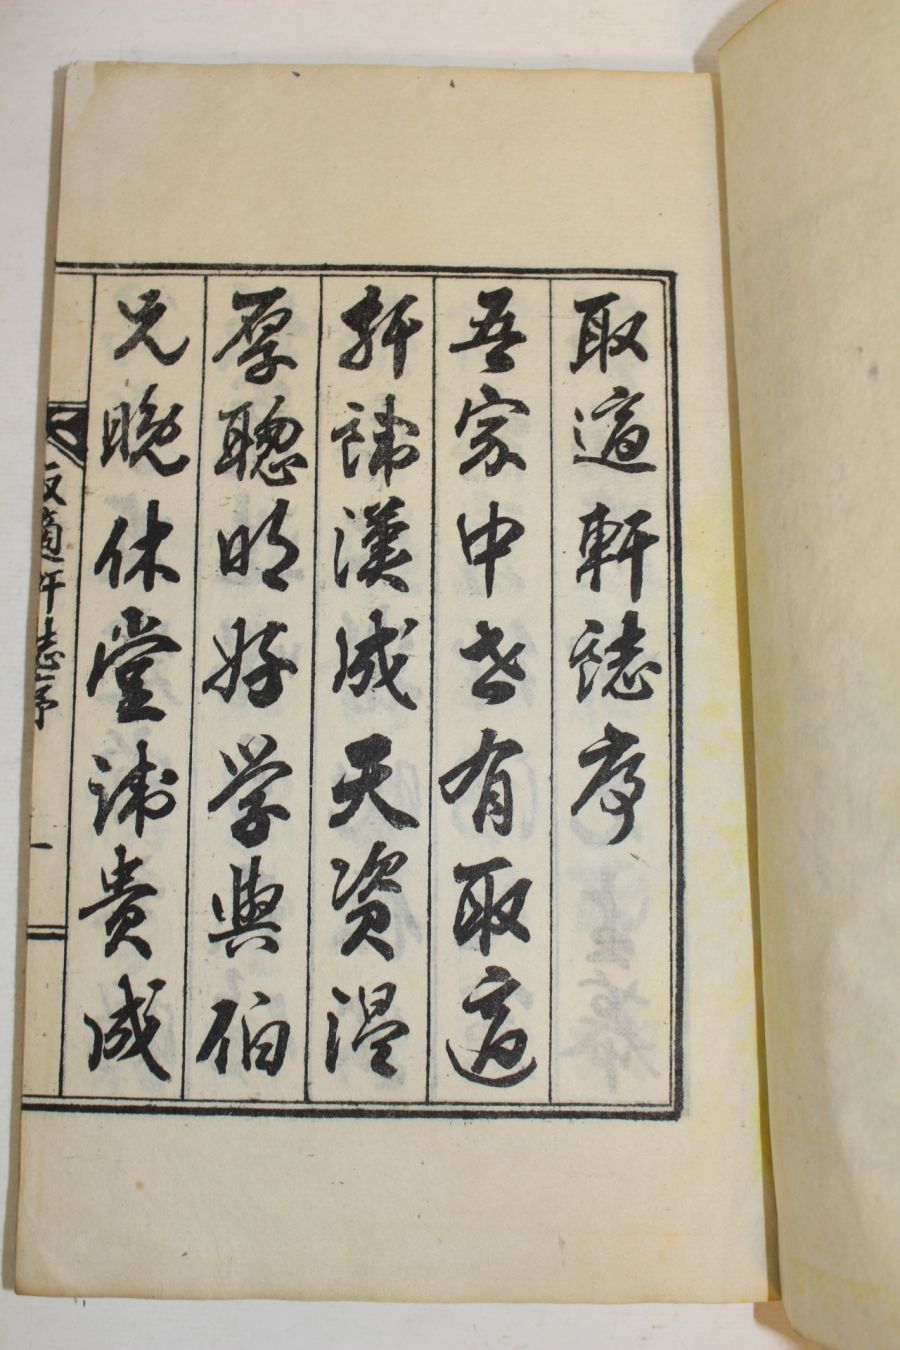 取適軒誌序
吾家中世有取適
軒諱漢成天資溫
厚聰明好學與伯
兄晚休堂諱貴成
取適軒誌序 一